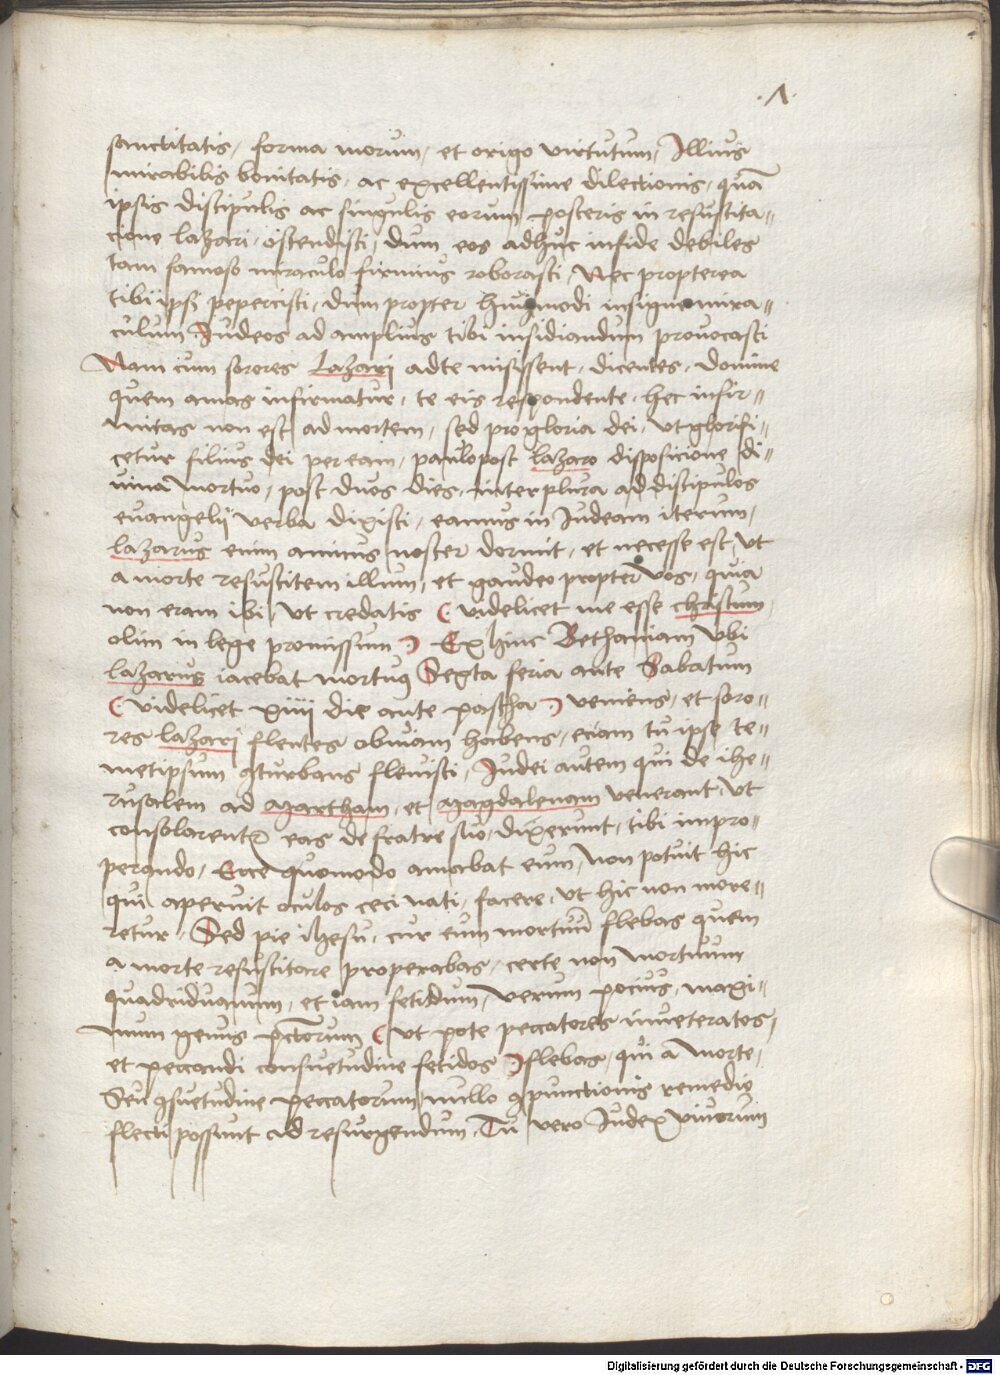 .Λ.
sanctitatis, forma morum, et origo virtutum, Illius
mirabilis bonitatis, ac excellentissime dilectionis, quā
ipsis discipulis ac singulis eorum posteris in resuscita⸗
cione lazari, ostendisti, dum eos adhuc infide debiles
tam famoso miraculo firmius roborasti, Nec propterea
tibiipsi pepercisti, dum propter huiꝰmodi insigne mira⸗
culum Iudeos ad amplius tibi insidiandum provocasti
Nam cum sorores Lazari adte misissent, dicentes, domine
quem amas infirmatur, te eis respondente, hec infir⸗
mitas non est ad mortem, sed pro gloria dei, ut glorifi⸗
cetur filius dei per eam, paulopost lazaro disposicione di⸗
uina mortuo, post duos dies, inter plura ad discipulos
euangelij verba dixisti, eamus in Iudeam iterum,
lazarus enim amicus noster dormit, et necesse est, ut
a morte resuscitem illum, et gaudeo propter vos, quia
non eram ibi, ut credatis ( videlicet me esse christum
olim in lege promissum ) Ex hinc Bethaniam ubi
lazarus iacebat mortuꝰ Sexta feria ante Sabatum
( videlicet xiiij die ante pascha ) veniens, et soro⸗
res lazari flentes obuiam habens, eciam tu ipse te⸗
metipsum ꝯturbans fleuisti, Iudei autem qui de ihe⸗
rusalem ad Martham, et Magdalenam venerant, ut
consolarentr̄ eas de fratre suo, dixerunt, tibi impro⸗
perando, Ecce quomodo amabat eum, non potuit hic
qui aperuit oculos ceci nati, facere, ut hic non more⸗
retur, Sed pie ihesu, cur eum mortuū flebas quem
a morte resuscitare properabas, certe non mortuum
quadriduanum, et iam fetidum, verum pocius, maxi⸗
mum genus pctōrum ( ut pote peccatores inueteratos,
et peccandi consuetudine fetidos ) flebas, qui a morte,
Seu ꝯsuetudine peccatorum nullo ꝯpunctionis remedio
flecti possunt ad resurgendum, Tu vero Iudex viuorum
Digitalisierung gefördert durch die Deutsche Forschungsgemeinschaft - DFG